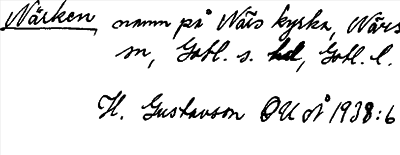 Närken namn på Närs kyrka, Närs
sn, Gotl. s. hd, Gotl. l.
H. Gustavson OUÅ 1938:6